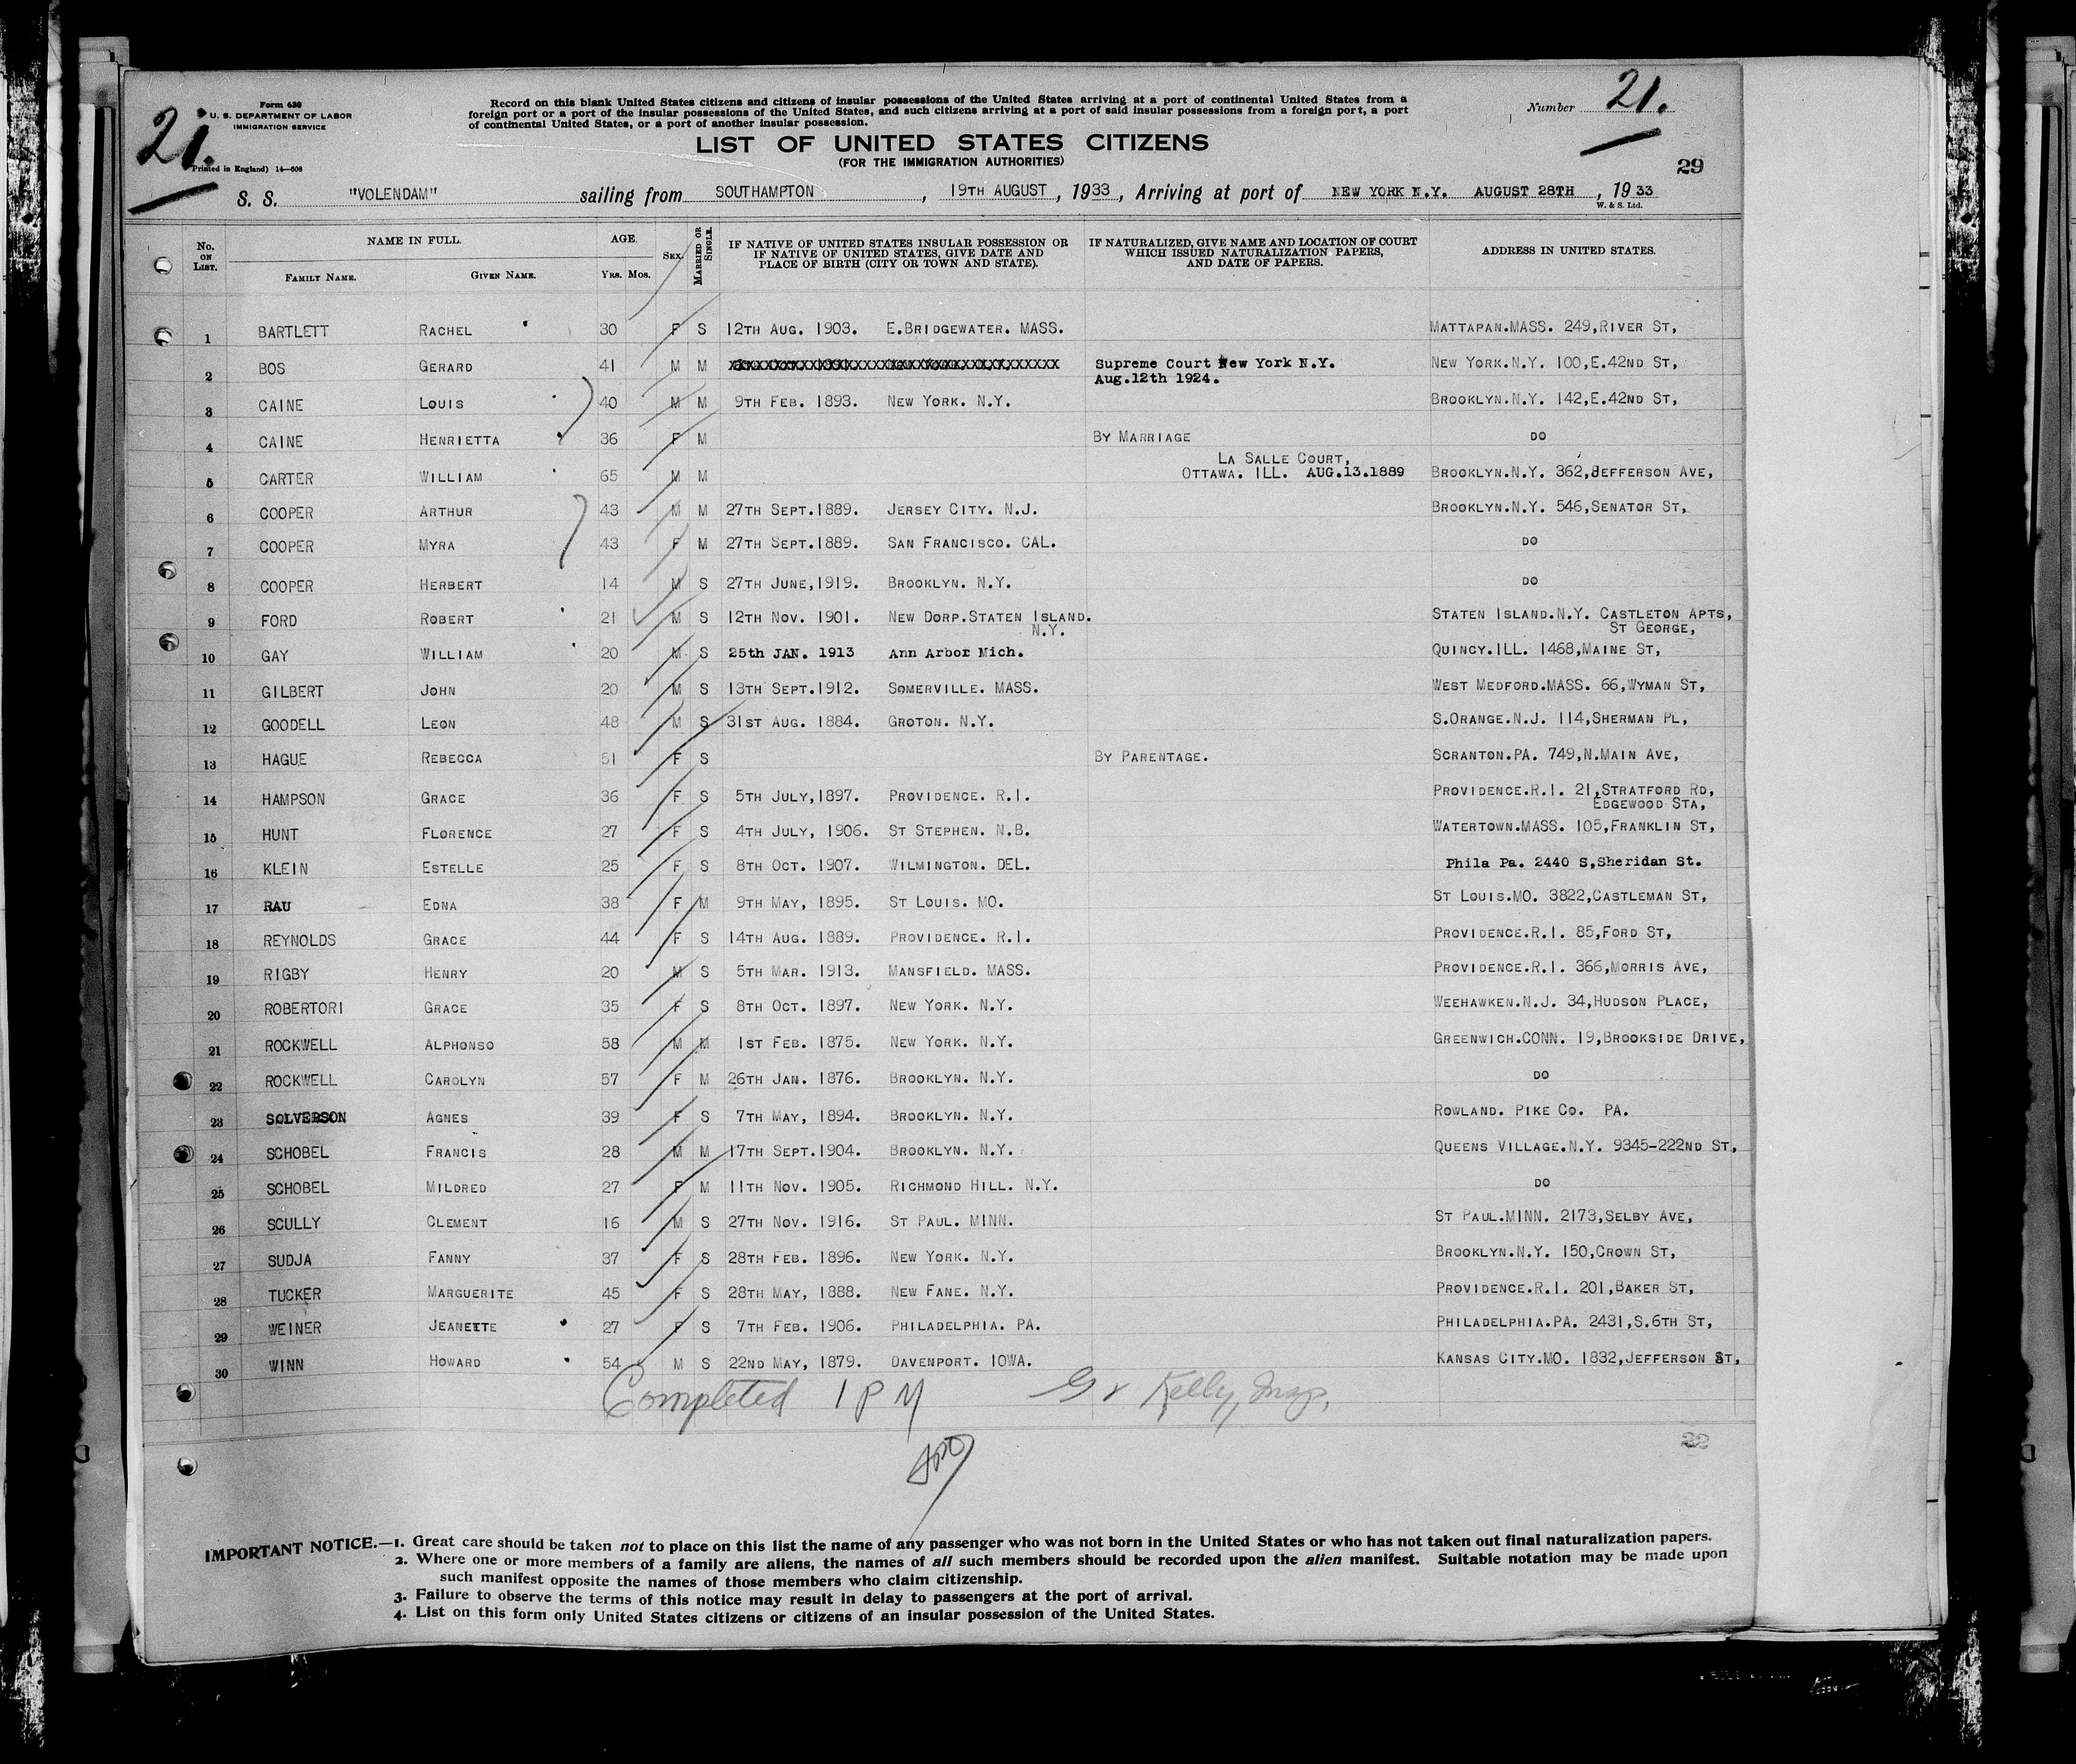 21.
Form 630
U. S. DEPARTMENT OF LABOR
IMMIGRATION SERVICE
Printed in England) 14—608
Record on this blank United States citizens and citizens of insular possessions of the United States arriving at a port of continental United States from a
foreign port or a port of the insular possessions of the United States, and such citizens arriving at a port of said insular possessions from a foreign port, a port
of continental United States, or a port of another insular possession.
Number 21.
LIST OF UNITED STATES CITIZENS
(FOR THE IMMIGRATION AUTHORITIES)
29
S. S. "VOLENDAM" sailing from SOUTHAMPTON , 19TH AUGUST , 1933, Arriving at port of NEW YORK N.Y. AUGUST 28TH , 1933
W. & S. Ltd.
No. ON LIST. NAME IN FULL. FAMILY NAME. GIVEN NAME. AGE. YRS. MOS. SEX. MARRIED OR SINGLE. IF NATIVE OF UNITED STATES INSULAR POSSESSION OR IF NATIVE OF UNITED STATES, GIVE DATE AND PLACE OF BIRTH (CITY OR TOWN AND STATE). IF NATURALIZED, GIVE NAME AND LOCATION OF COURT WHICH ISSUED NATURALIZATION PAPERS, AND DATE OF PAPERS. ADDRESS IN UNITED STATES.
1 BARTLETT RACHEL 30 F S 12TH AUG. 1903. E.BRIDGEWATER. MASS. MATTAPAN.MASS. 249,RIVER ST,
2 BOS GERARD 41 M M Supreme Court New York N.Y. NEW YORK.N.Y. 100,E.42ND ST,
Aug.12th 1924.
3 CAINE LOUIS 40 M M 9TH FEB. 1893. NEW YORK. N.Y. BROOKLYN.N.Y. 142,E.42ND ST,
4 CAINE HENRIETTA 36 F M BY MARRIAGE DO
LA SALLE COURT,
5 CARTER WILLIAM 65 M M OTTAWA. ILL. AUG.13.1889 BROOKLYN.N.Y. 362,JEFFERSON AVE,
6 COOPER ARTHUR 43 M M 27TH SEPT.1889. JERSEY CITY. N.J. BROOKLYN.N.Y. 546,SENATOR ST,
7 COOPER MYRA 43 F M 27TH SEPT.1889. SAN FRANCISCO. CAL. DO
8 COOPER HERBERT 14 M S 27TH JUNE,1919. BROOKLYN. N.Y. DO
9 FORD ROBERT 21 M S 12TH NOV. 1901. NEW DORP.STATEN ISLAND. STATEN ISLAND.N.Y. CASTLETON APTS,
N.Y. ST GEORGE,
10 GAY WILLIAM 20 M S 25th JAN. 1913 Ann Arbor Mich. QUINCY.ILL. 1468,MAINE ST,
11 GILBERT JOHN 20 M S 13TH SEPT.1912. SOMERVILLE. MASS. WEST MEDFORD.MASS. 66,WYMAN ST,
12 GOODELL LEON 48 M S 31ST AUG. 1884. GROTON. N.Y. S.ORANGE.N.J. 114,SHERMAN PL,
13 HAGUE REBECCA 51 F S BY PARENTAGE. SCRANTON.PA. 749,N.MAIN AVE,
14 HAMPSON GRACE 36 F S 5TH JULY,1897. PROVIDENCE. R.I. PROVIDENCE.R.I. 21,STRATFORD RD,
EDGEWOOD STA,
15 HUNT FLORENCE 27 F S 4TH JULY, 1906. ST STEPHEN. N.B. WATERTOWN.MASS. 105,FRANKLIN ST,
16 KLEIN ESTELLE 25 F S 8TH OCT. 1907. WILMINGTON. DEL. Phila Pa. 2440 S,Sheridan St.
17 RAU EDNA 38 F M 9TH MAY, 1895. ST LOUIS. MO. ST LOUIS.MO. 3822,CASTLEMAN ST,
18 REYNOLDS GRACE 44 F S 14TH AUG. 1889. PROVIDENCE. R.I. PROVIDENCE.R.I. 85,FORD ST,
19 RIGBY HENRY 20 M S 5TH MAR. 1913. MANSFIELD. MASS. PROVIDENCE.R.I. 366,MORRIS AVE,
20 ROBERTORI GRACE 35 F S 8TH OCT. 1897. NEW YORK. N.Y. WEEHAWKEN.N.J. 34,HUDSON PLACE,
21 ROCKWELL ALPHONSO 58 M M 1ST FEB. 1875. NEW YORK. N.Y. GREENWICH.CONN. 19,BROOKSIDE DRIVE,
22 ROCKWELL CAROLYN 57 F M 26TH JAN. 1876. BROOKLYN. N.Y. DO
23 SOLVERSON AGNES 39 F S 7TH MAY, 1894. BROOKLYN. N.Y. ROWLAND. PIKE CO. PA.
24 SCHOBEL FRANCIS 28 M M 17TH SEPT.1904. BROOKLYN. N.Y. QUEENS VILLAGE.N.Y. 9345-222ND ST,
25 SCHOBEL MILDRED 27 F M 11TH NOV. 1905. RICHMOND HILL. N.Y. DO
26 SCULLY CLEMENT 16 M S 27TH NOV. 1916. ST PAUL. MINN. ST PAUL.MINN. 2173,SELBY AVE,
27 SUDJA FANNY 37 F S 28TH FEB. 1896. NEW YORK. N.Y. BROOKLYN.N.Y. 150,CROWN ST,
28 TUCKER MARGUERITE 45 F S 28TH MAY, 1888. NEW FANE. N.Y. PROVIDENCE.R.I. 201,BAKER ST,
29 WEINER JEANETTE 27 F S 7TH FEB. 1906. PHILADELPHIA. PA. PHILADELPHIA.PA. 2431,S.6TH ST,
30 WINN HOWARD 54 M S 22ND MAY, 1879. DAVENPORT. IOWA. KANSAS CITY.MO. 1832,JEFFERSON ST,
Completed 1 PM Kelly, Insp.
22
IMPORTANT NOTICE.—1. Great care should be taken not to place on this list the name of any passenger who was not born in the United States or who has not taken out final naturalization papers.
2. Where one or more members of a family are aliens, the names of all such members should be recorded upon the alien manifest. Suitable notation may be made upon
such manifest opposite the names of those members who claim citizenship.
3. Failure to observe the terms of this notice may result in delay to passengers at the port of arrival.
4. List on this form only United States citizens or citizens of an insular possession of the United States.